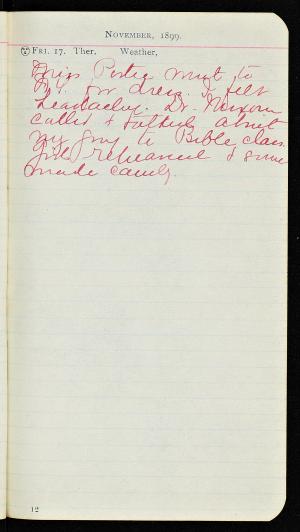 NOVEMBER, 1899.
FRI. 17. Ther. Weather,
Miss Porter went to
for dress. I felt
headachey. Dr.
called & talked about
my going to Bible class.
Girls rehearsed & some
made candy.
12